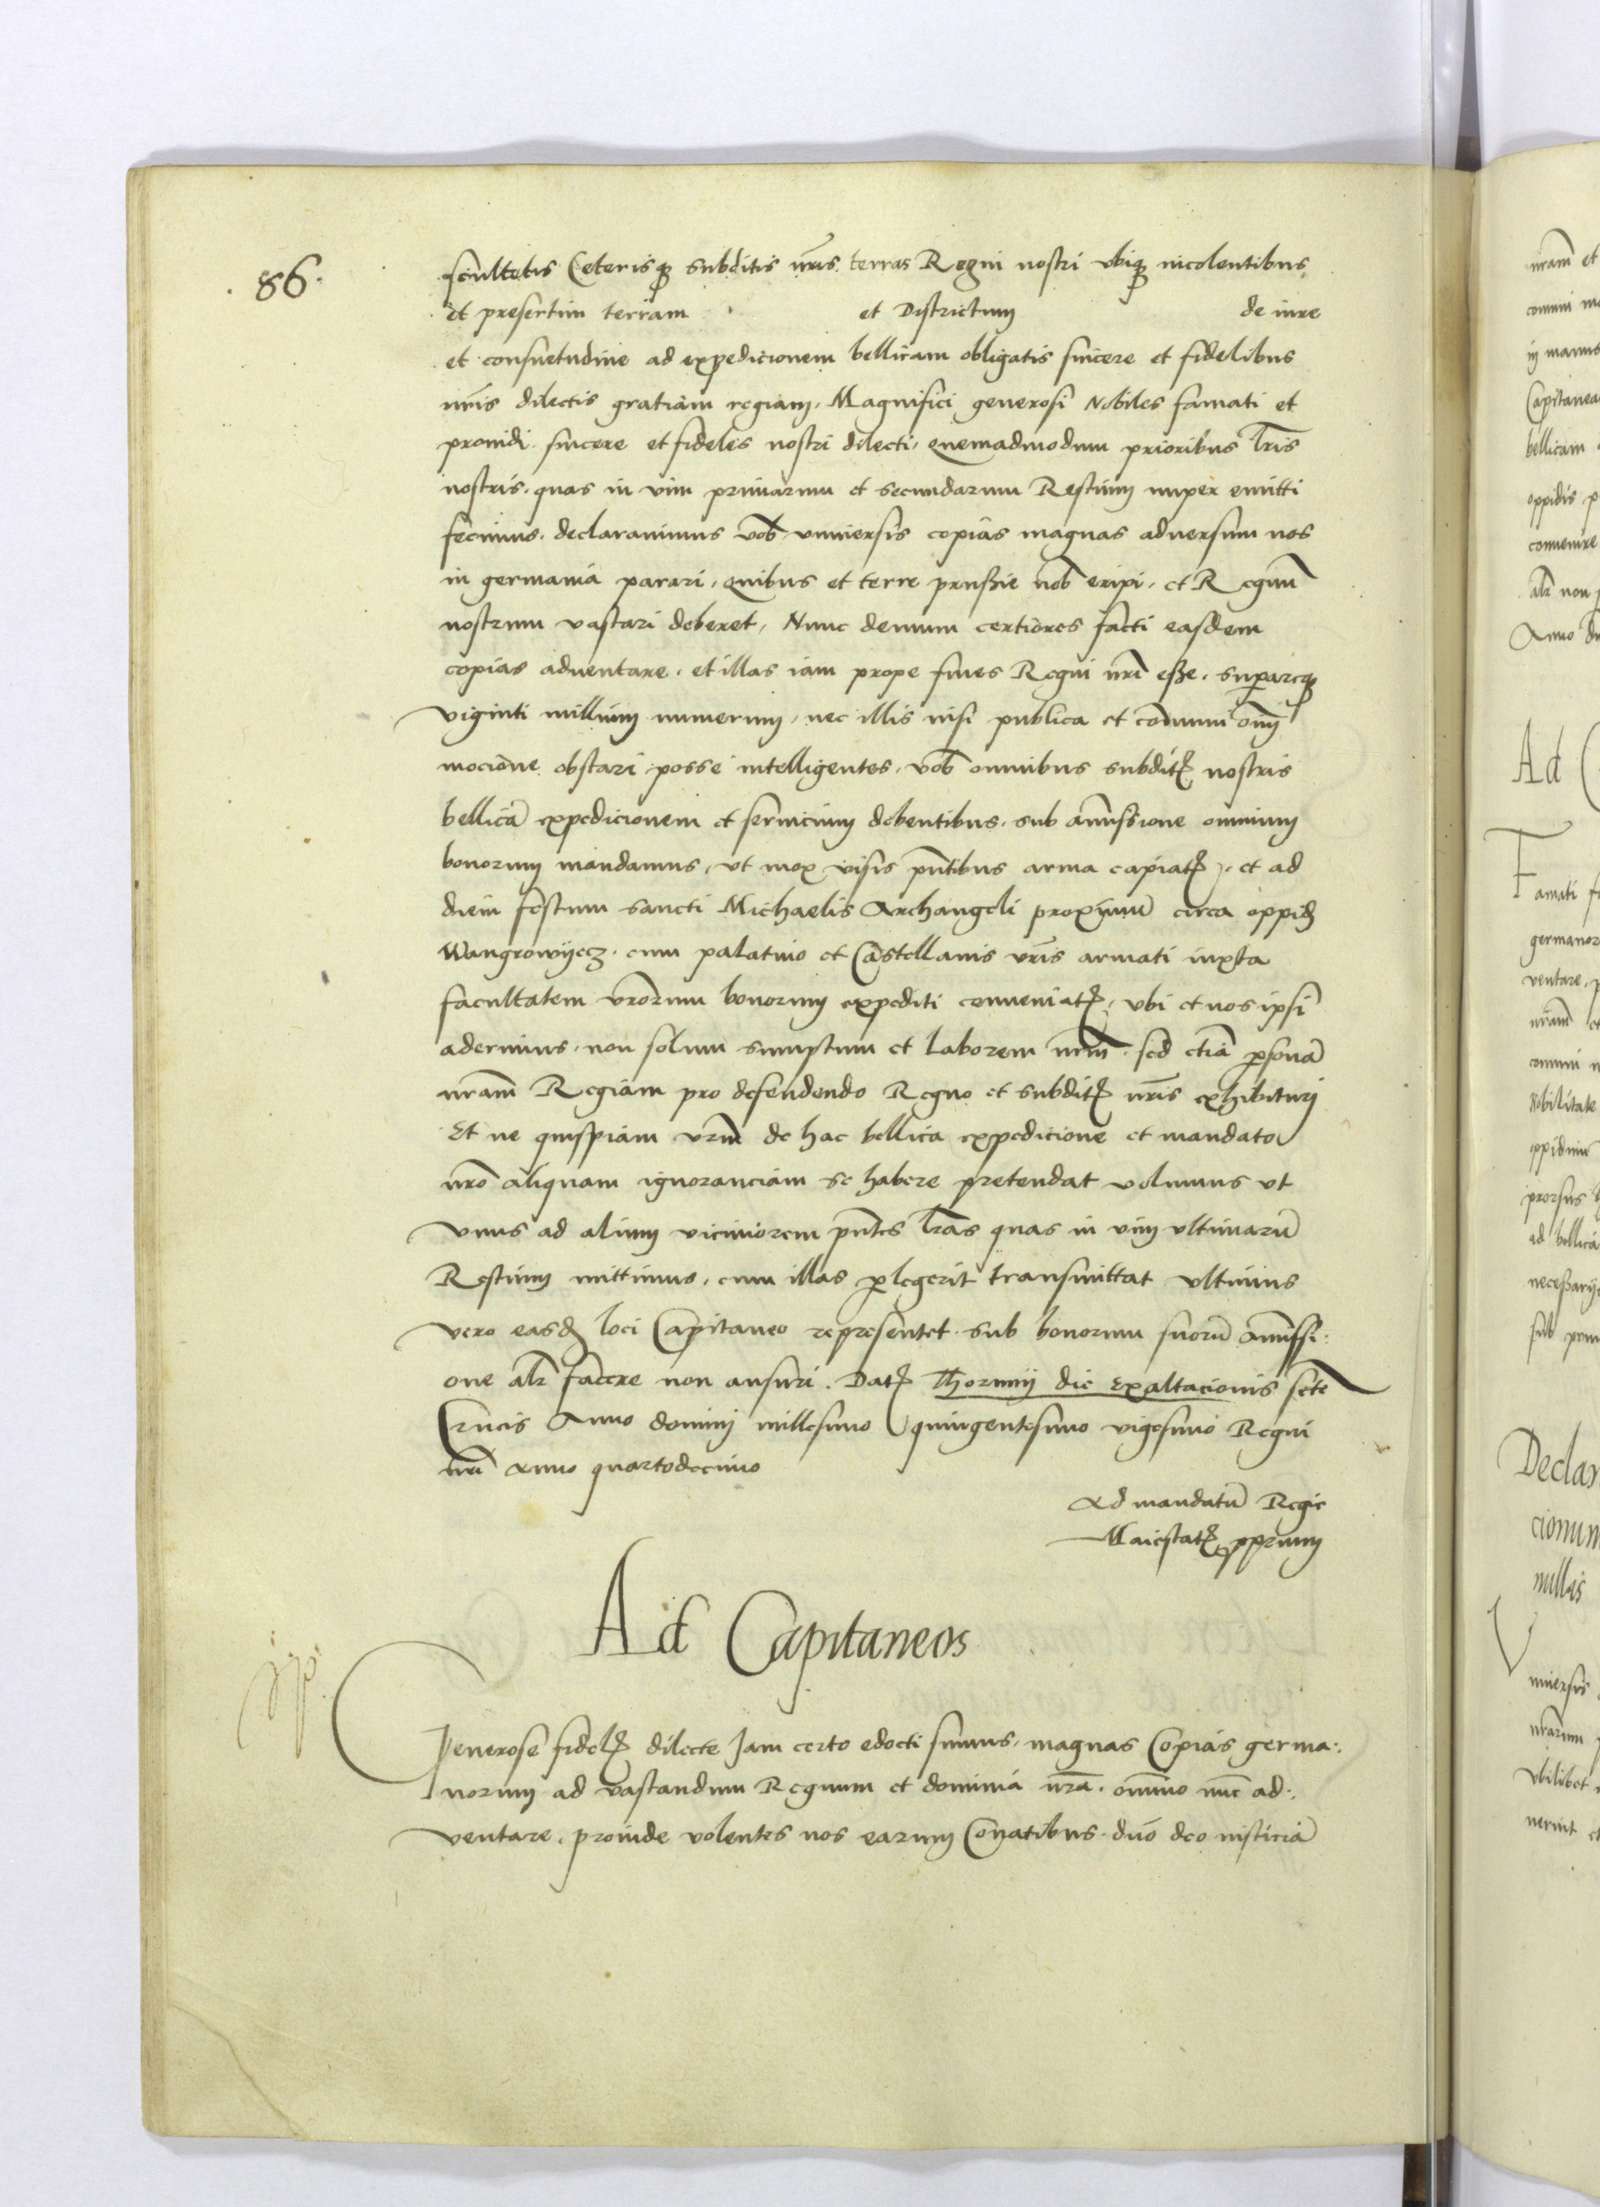 86.
scultetis Ceterisq3 subditis nr̄is terras Regni nostri vbiq3 incolentibus
et presertim terram et Districtum de iure
et consuetudine ad expedicionem bellicam obligatis sincere et fidelibus
nr̄is dilectis gratiam regiam. Magnifici generosi Nobiles famati et
prouidi sincere et fideles nostri dilecti. Quemadmodum prioribus lr̄is
nostris. quas in vim primarum et secundarum Restium nuper emitti
fecimus. declarauimus vob̄ vniuersis copias magnas aduersum nos
in germania parari. Quibus et terre prussie nob̄ eripi. et Regnū
nostrum vastari deberet. Nunc demum certiores facti easdem
copias aduentare. et illas iam prope fines Regni nr̄i esse. superareq3
viginti millium numerum. nec illis nisi publica et comuni om̄
mocione obstari posse intelligentes. vob̄ omnibus subdit̄ nostris
bellicā expedicionem et seruicium debentibus. sub amissione omnium
bonorum mandamus. vt mox visis pn̄tibus arma capiat̄. et ad
diem festum sancti Michaelis Archangeli proximū circa oppid̄
Wangrowyecz. cum palatino et Castellanis vr̄is armati iuxta
facultatem vr̄orum bonorum expediti conueniat̄. vbi et nos ipsi
aderimus. non solum sumptum et laborem nr̄m. sed etiā p̄sonā
nr̄am Regiam pro defendendo Regno et subdit̄ nr̄is exhibituri
Et ne quispiam vr̄m de hac bellica expedicione et mandato
nr̄o aliquam ignoranciam se habere pretendat volumus vt
vnus ad alium viciniorem pn̄tes lr̄as quas in vim vltimarū
Restium mittimus. cum illas p̄legerit transmittat vltimus
vero easd̄ loci Capitaneo representet. sub bonorum suorū amissi:
one alr̄ facere non ausuri. Dat̄ Thorunij die Exaltacionis scte
Crucis Anno domini millesimo quingentesimo vigesimo Regni
nr̄i Anno quartodecimo
Ad mandatū Regie
Maiestat̄ pprium
Ad Capitaneos
Generose fidel̄ dilecte Jam certo edocti sumus. magnas Copias germa:
norum ad vastandum Regnum et dominia nr̄a. omnino nūc ad:
ventare. proinde volentes nos earum Conatibus. duō deo iusticiā